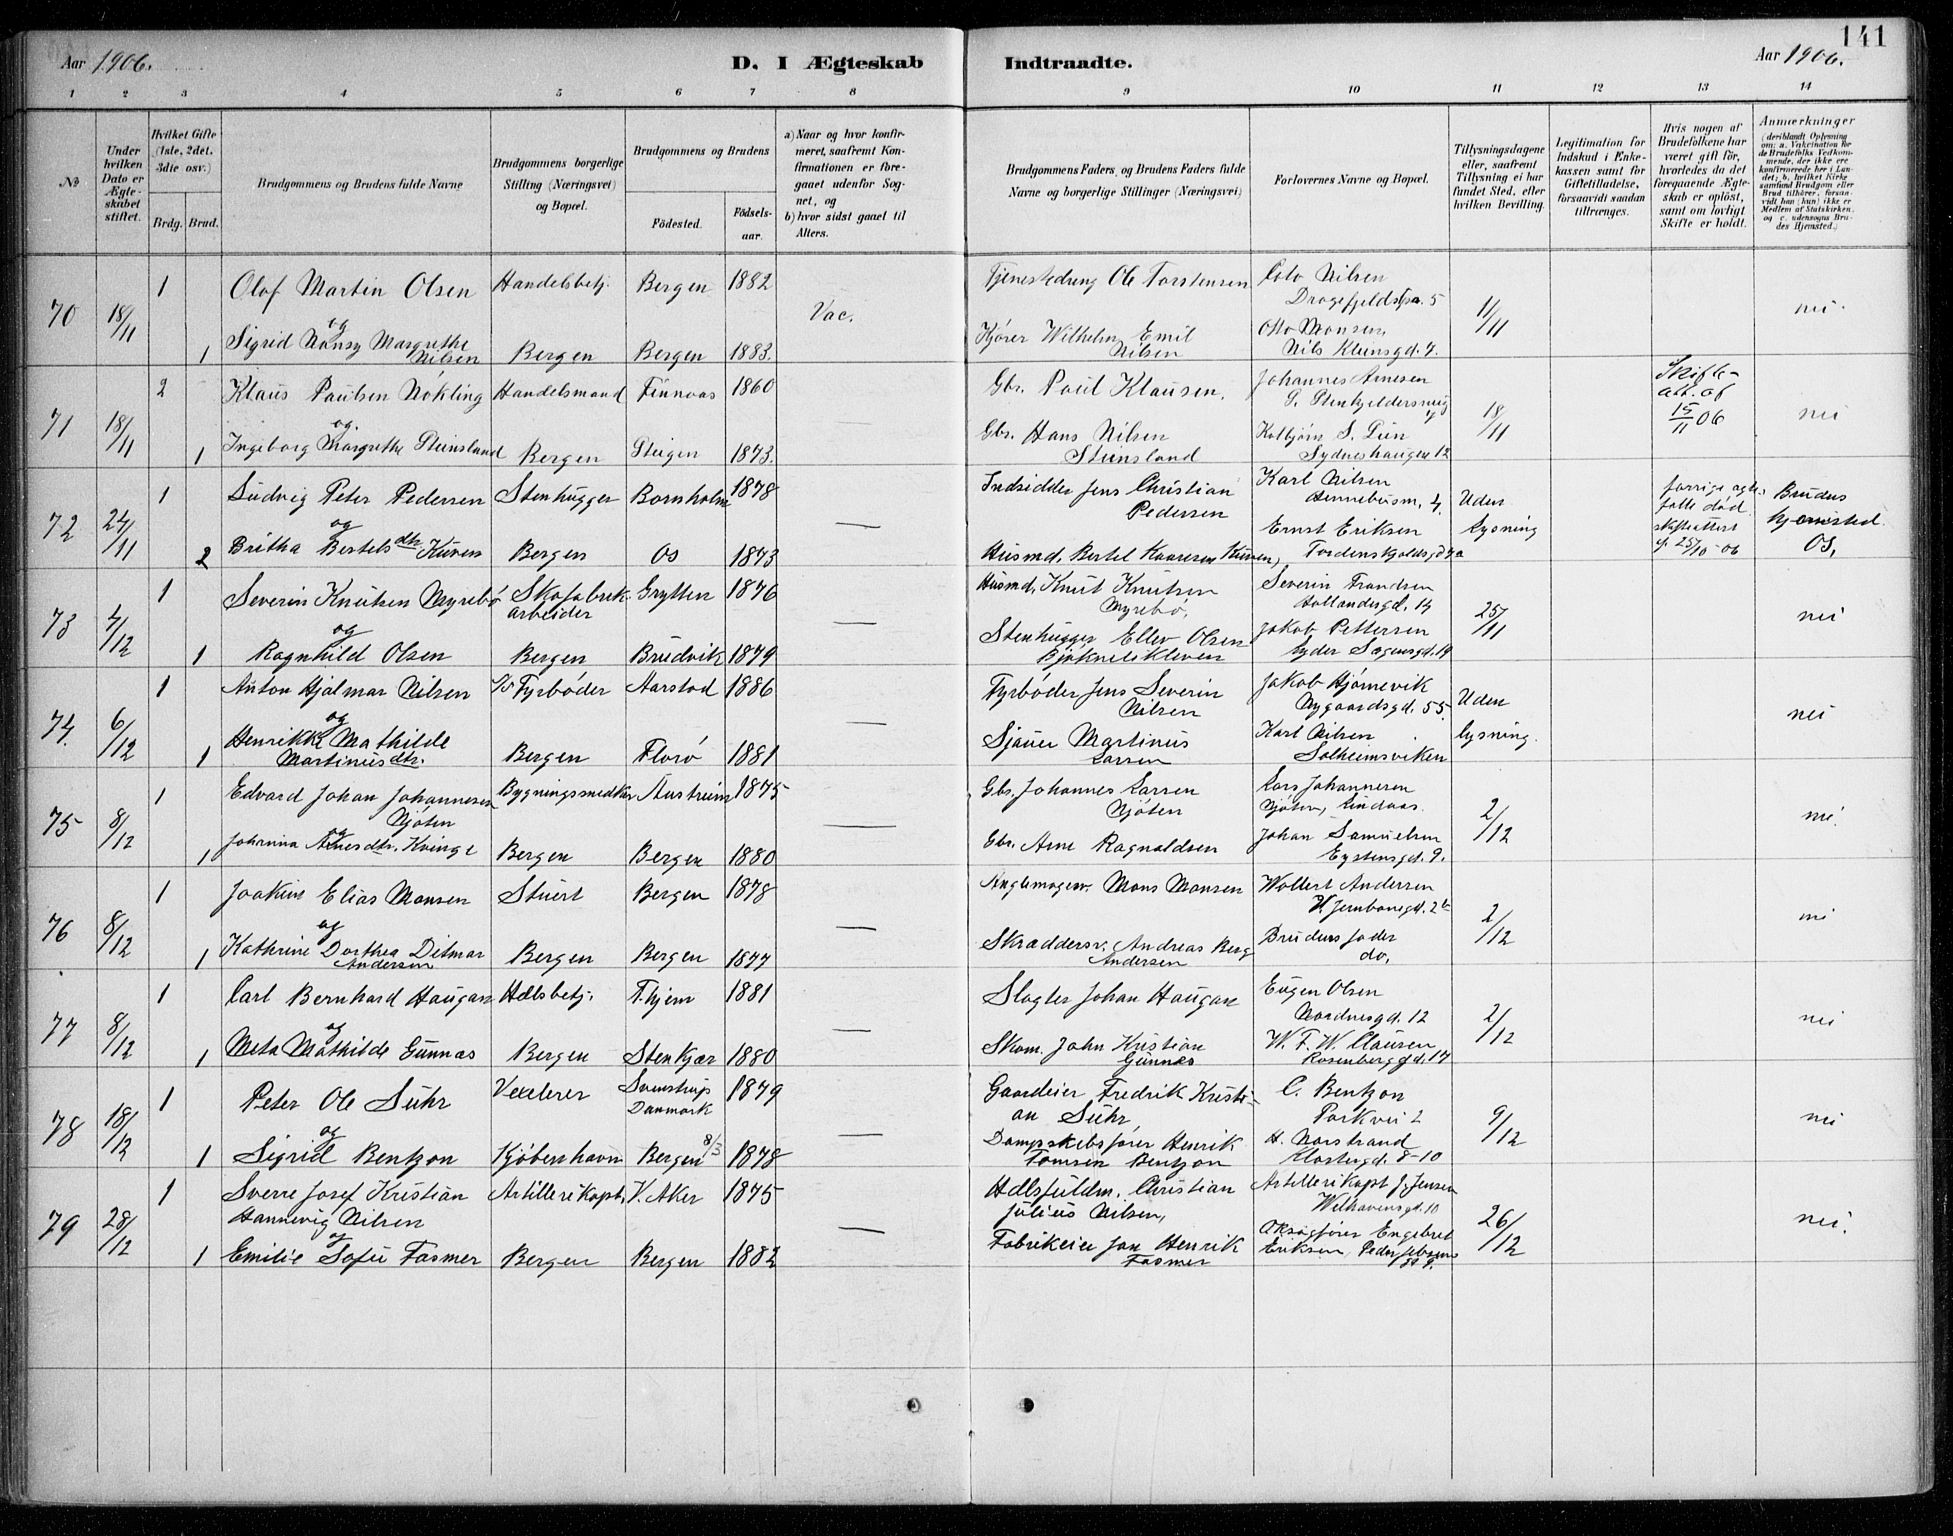 141
Aar 1906.
D. I Ægteskab Indtraadte.
Aar 1906.
1 2 3 4 5 6 7 8 9 10 11 12 13 14
No
Under hvilken Dato er Ægteskabet stiftet.
Hvilket Gifte (1ste, 2det, 3die osv.)
Brdg. Brud.
Brudgommens og Brudens fulde Navne
Brudgommens borgerlige Stilling (Næringsvei) og Bopæl.
Brudgommens og Brudens
Födested.
Födselsaar.
a) Naar og hvor konfirmeret, saafremt Konfirmationen er foregaaet udenfor Sognet, og
b) hvor sidst gaaet til Alters.
Brudgommens Faders, og Brudens Faders fulde Navne og borgerlige Stillinger (Næringsvei)
Forlovernes Navne og Bopæl.
Tillysningsdagene eller, saafremt Tillysning ei har fundet Sted, efter hvilken Bevilling.
Legitimation for Indskud i Enkekassen samt for Giftetilladelse, forsaavidt saadan tiltrænges.
Hvis nogen af Brudefolkene har været gift för, hvorledes da det foregaaende Ægteskab er oplöst, samt om lovligt Skifte er holdt.
Anmærkninger
(deriblandt Oplysning om: a. Vakcination for de Brudefolks Vedkommende, der ikke ere konfirmerede her i Landet; b. hvilket Kirkesamfund Brudgom eller Brud tilhører, forsaavidt han (hun) ikke er Medlem af Statskirken, og c. udensogns Brudes Hjemsted.)
70 18/11 1 Olaf Martin Olsen Handelsbetj. Bergen 1882 Vac. Tjenestedreng Ole Torstensen Nilsen Dragefjeldstra. 5 11/11 nei.
og
1 Sigrid Nansy Margrethe Nilsen Bergen Bergen 1883. Kjører Wilhelm Emil Nilsen Otto Monsen, Nils Kleinsgd. 7.
71 18/11 2 Klaus Paulsen Nökling Handelsmand Finnaas 1860 Gbr. Poul Klausen, Johannes Arnesen 18/11 Skifteatt. af 15/11 06 nei
og.
1 Ingeborg Margrethe Steinsland Bergen Steigen 1873. Gbr. Hans Nilsen Steinsland Kolbjørn S. Lun Sydneshaugen 12
72 24/11 1 Ludvig Peter Pedersen Stenhugger Bornholm 1878 Indsidder Jens Christian Pedersen Karl Nilsen Uden Lysning forrige ægtefelle död. skifteattest 25/10-06 Brudens hjemsted Os,
og
2 Britha Bertelsdtr Kuven Bergen Os 1873 Husmd. Bertel Kaaresen Kuven, Ernst Eriksen Tordenskjoldsgd 7a
73 4/12 1 Severin Knutsen Myrebø Skofabrikarbeider Grytten 1876 Husmd. Knut Knutsen Myrebø, Severin Frandsen Hollandergd. 14 25/11 nei
og
1 Ragnhild Olsen Bergen Brudvik 1879 Stenhugger Ellev Olsen Jakob Pettersen Lyder Sagensgd. 19
74. 6/12 1 Anton Hjalmar Nilsen Fyrbøder Aarstad 1886 Fyrbøder Jens Severin Nilsen Jakob Hjørnevik Nygaardsgd. 55. Uden lysning. nei
og
1 Henrikke Mathilde Martinusdtr. Bergen Florø 1881 Sjauer Martinus Larsen Karl Nilsen Solheimsviken
75 8/12 1 Edvard Johan Johannesen Njøten Bygningssnedker Austrheim 1875 Gbr. Johannes Larsen Njøten Lars Johannesen Njøten, Lindaas. 2/12 nei.
og
1 Johanna Arnesdtr. Kvinge Bergen Bergen 1880 Gbr. Arne Ragnaldsen Johan Samuelsen Eystensgd. 9.
76 8/12 1 Joakim Elias Monsen Stuert Bergen 1878 Anglemager. Mons Monsen Wollert Andersen Jernbanegd. 2b 2/12 nei
og
1 Kathrine Dorthea Ditmar Andersen Bergen Bergen 1877 Skræddersv. Andreas Berg Andersen Brudens fader do,
77 8/12 1 Carl Bernhard Haugan Hdlsbetj. T.hjem 1881 Slagter Johan Haugan Eugen Olsen Nordnesgd. 12 2/12 nei
og
1 Meta Mathilde Gunnes Bergen Stenkjær 1880 Skom. John Kristian Gunnes W. F. W. Clausen Rosenberggd. 17
78 18/12 1 Peter Ole Suhr Vexelerer Svenstrup Danmark 1879 Gaardeier Fredrik Kristian Suhr, C. Bentzon Parkvei 2 9/12 nei
og
1 Sigrid Bentzon Kjöbenhavn Bergen 8/3 1878 Dampskibsfører Henrik Tomsen Bentzon H. Norstrand Klostergd. 8-10
79 28/12 1 Sverre Josef Kristian Hannevig Nilsen Artillerikapt. V. Aker 1875 Hdlsfuldm. Christian Julius Nilsen, Artillerikapt J. Jensen Welhavensgd. 10 26/12 nei.
og
1 Emilie Sofie Fasmer Bergen Bergen 1882 Fabrikeier Jan Henrik Fasmer Oksagfører Engebret Eriksen,